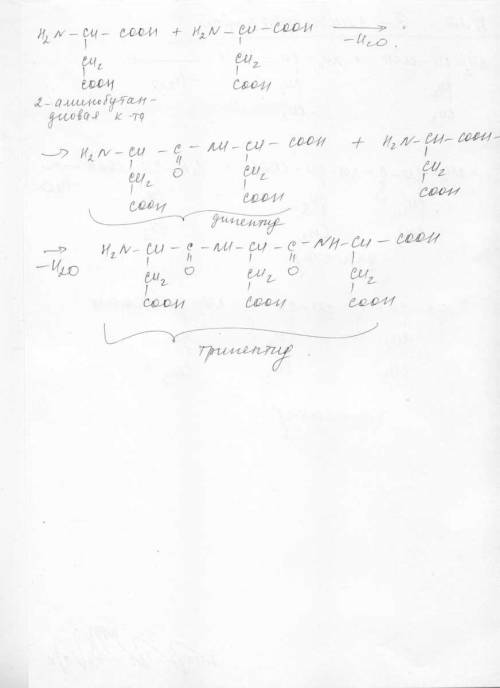 H₂N – CH – COOH + H₂N – CH – COOH ⟶ –H₂O
CH₂ CH₂
COOH COOH
2-аминобутан-
диовая к-та
→ H₂N – CH – C – NH – CH – COOH + H₂N – CH – COOH –
CH₂ O CH₂ CH₂
COOH COOH COOH
дипептид
→ –H₂O H₂N – CH – C – NH – CH – C – NH – CH – COOH
CH₂ O CH₂ O CH₂
COOH COOH COOH
трипептид